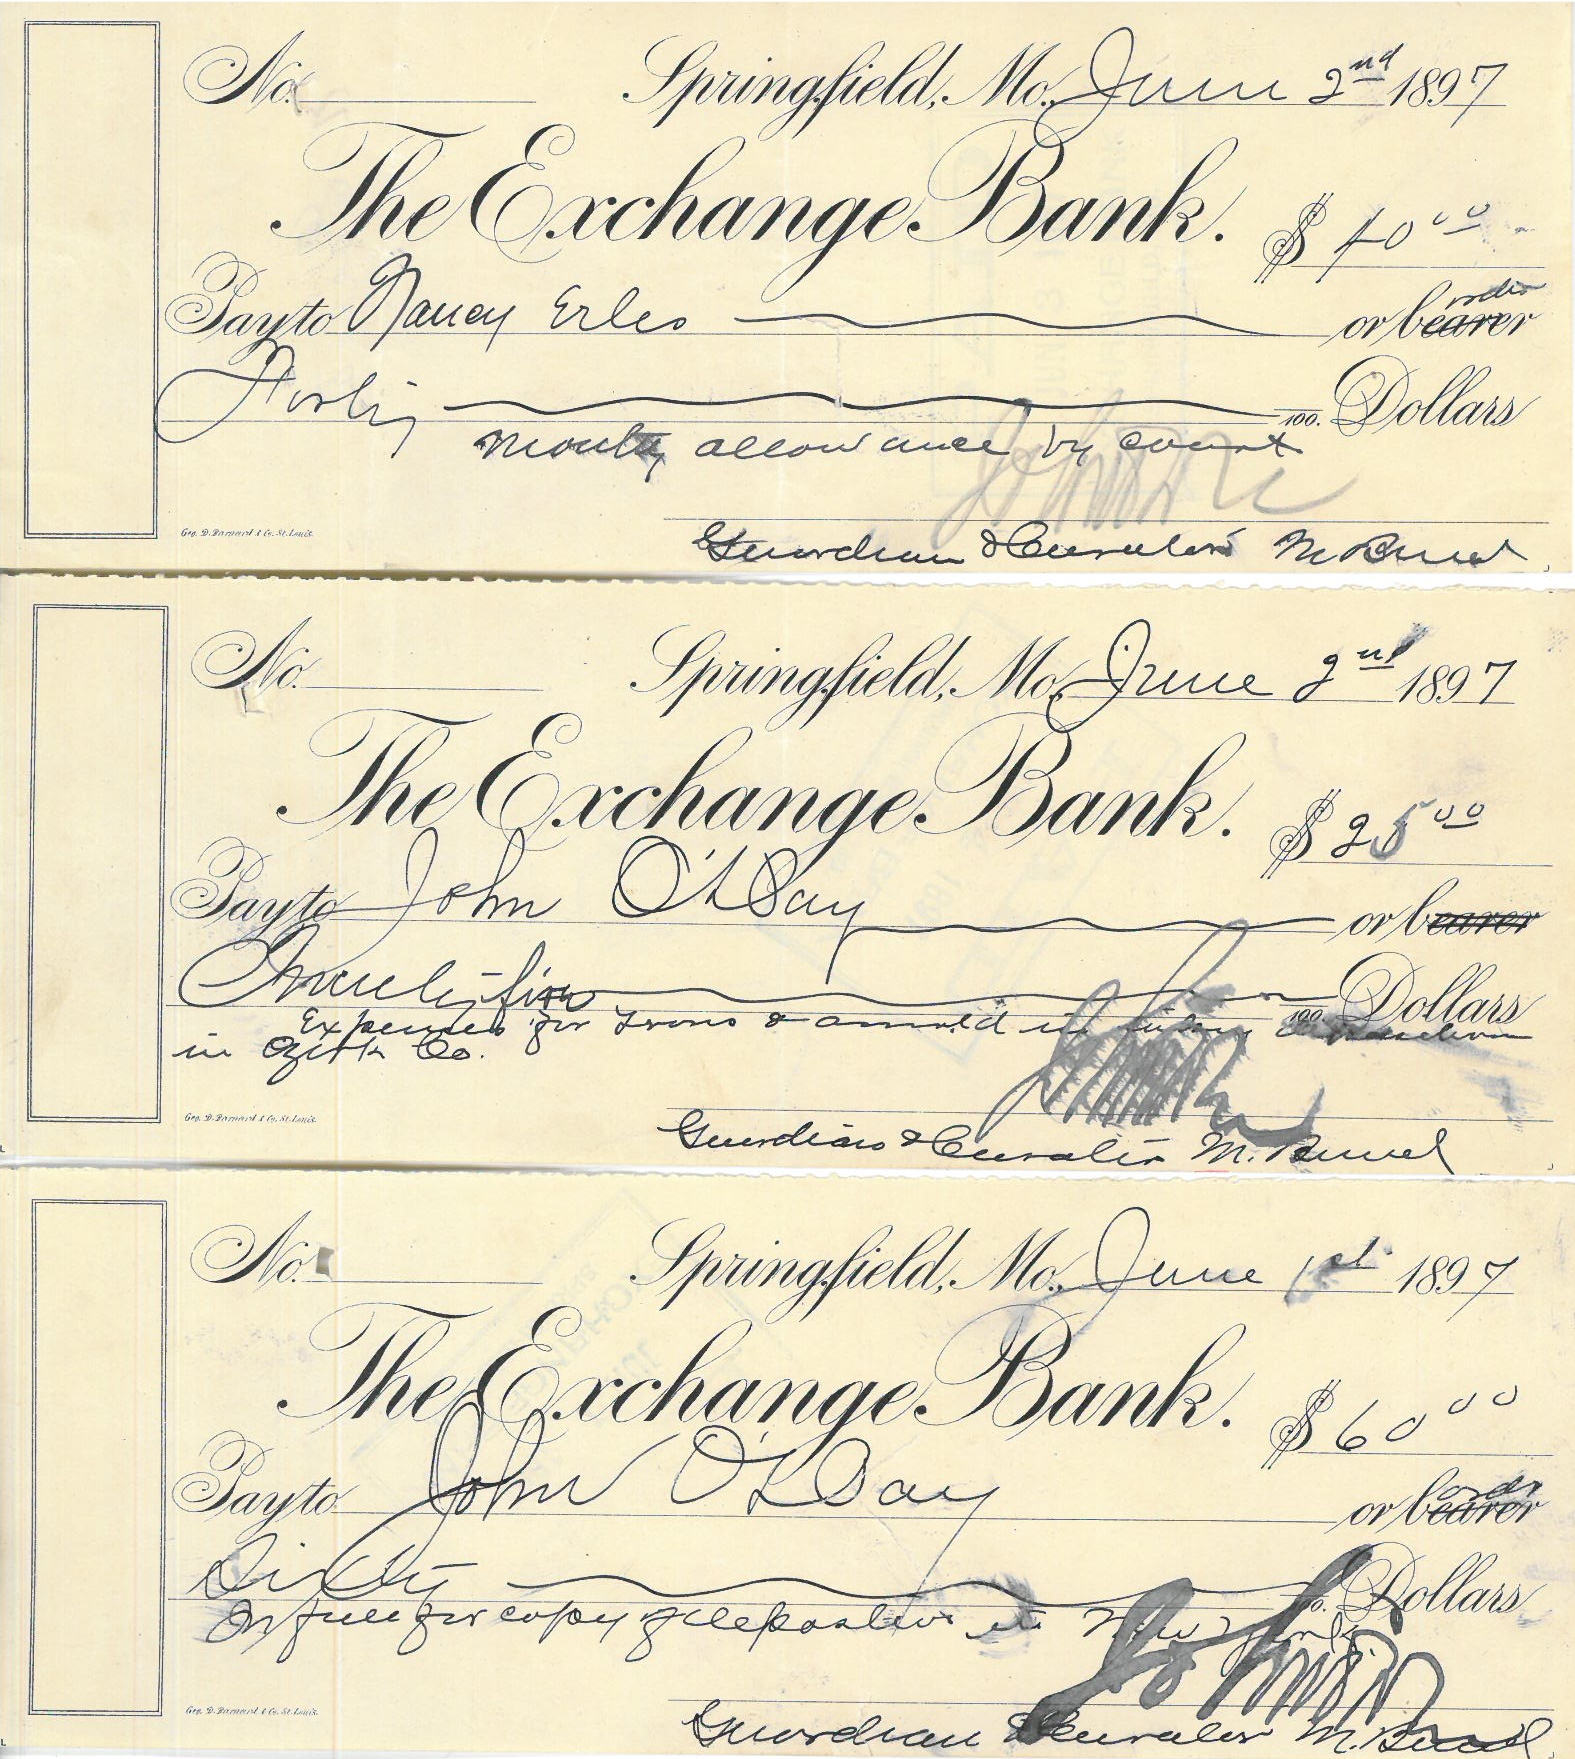 No.
Springfield, Mo., June 2nd 1897
The Exchange Bank.
$ 40 00
Pay to Nancy Erles or bearer order
Forty 100. Dollars
Month allowance by court
Geo. D. Barnard & Co. St. Louis.
Guardian & Curator M
No.
Springfield, Mo., June 2nd 1897
The Exchange Bank.
$ 25 00
Pay to John O'Day or bearer
Twenty-five 100 Dollars
Expenses for & Arnold in
in Co.
Geo. D. Barnard & Co. St. Louis.
Guardian & Curator M.
No.
Springfield, Mo., June 1st 1897
The Exchange Bank.
$ 60 00
Pay to John O'Day or bearer order
Sixty Dollars
In full for copy of deposition in New York
Geo. D. Barnard & Co. St. Louis.
Guardian & Curator M.